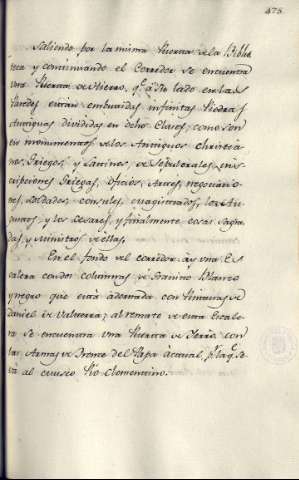 475
Saliendo por la misma Puerta de la Biblio
teca y continuando el Corredor se encuentra
una Puerta de Hierro, q.e a Su lado en las
Paredes estàn embutidas infinitas Piedras
Antiguas divididas en ocho Clases, como son
en monumentos de los Antiguos Christia
nos, Griegos, y Latinos, de Sepulcrales, ins
cripciones Griegas, Oficios, Artes, negociacio
nes, Soldados, consules, magistrados, los Au
gustos, y los Cesares, y finalmente cosas Sagra
das y Ministros de ellas.
En el fondo del corredor ay una Es
calera con dos columnas de Granito Blanco
y negro que està adornada con Pinturas de
Daniel de Valterra; al remate de esta Escale
ra se encuentra una Puerta de Yerro con
las Armas de Bronce del Papa àctual, p.r la q.e Se
và al museo Pio Clementino.